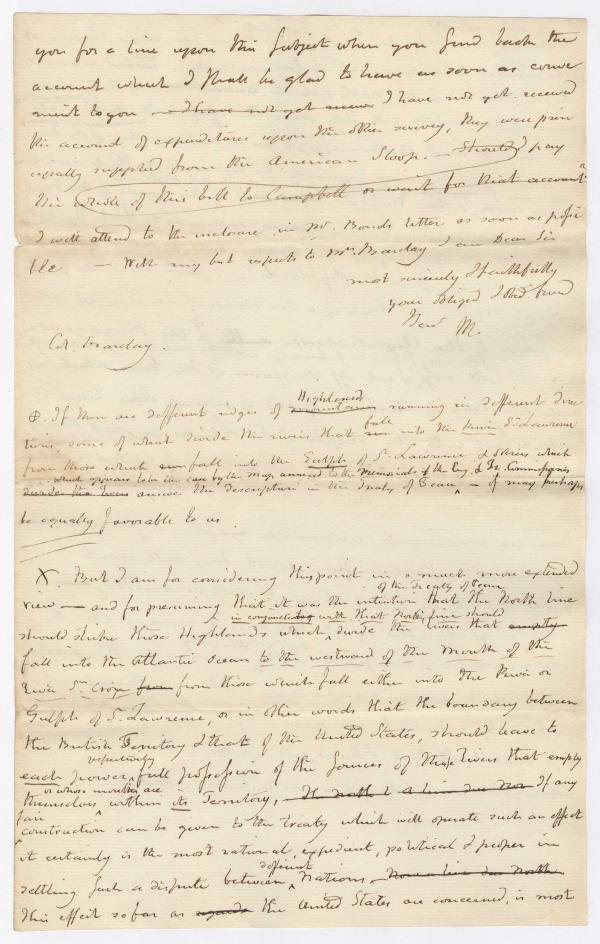 you for a line upon this Subject when you send back the
account which I shall be glad to have as soon as conve
nient to you — I have not yet recei I have not yet received
the account of expenditures upon the other survey, they were prin
cipally supplied from the American Sloop. — Should I pay
the whole of this bill to Campbell or wait for that account
I will attend to the inclosure in Mr. Bonds letter as soon as possi
ble — With my best respects to Mrs. Barclay I am Dear Sir
most sincerely & faithfully
your obliged & Obed. friend
M.
Col. Barclay.
If there are different ridges of mountains Highlands running in different direc
tions, some of which divide the rivers that run fall into the River St. Lawrence
from those which fall into the Gulph of St. Lawrence, & others which
which appears to be the case by the map annexed to the Memorials of the Eng. & Fr. Commissaries
divide the rivers answer the description in the Treaty of Peace — it may perhaps
be equally favorable to us.
X. But I am for considering this point in a much more extended
of the Treaty of Peace
view — and for presuming that it was the intention that the North line
in conjunction with that North line should
should strike those Highlands which divide the rivers that empty
fall into the Atlantic Ocean to the westward of the Mouth of the
River St. Croix from from those which fall either into the River or
Gulph of St. Lawrence, or in other words that the boundary between
the British Territory & that of the United States, should leave to
respectively
each power full possession of the Sources of those rivers that empty
or whose mouths are
themselves within its Territory, If any
fair
construction can be given to the Treaty which will operate such an effect
it certainly is the most rational, expedient, political & proper in
different
settling such a dispute between Nations, Now a line due North
this effect so far as regards the United States are concerned, is most